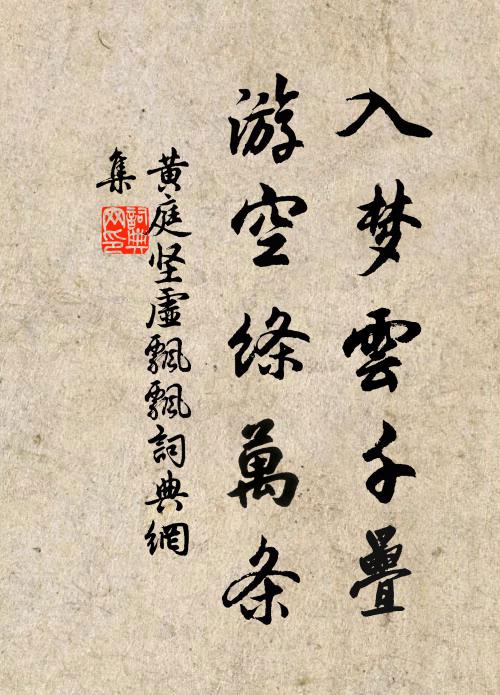 入梦雲千疊
游空絲萬条
黄庭坚虛飄飄詞典網
集
詞典
网印